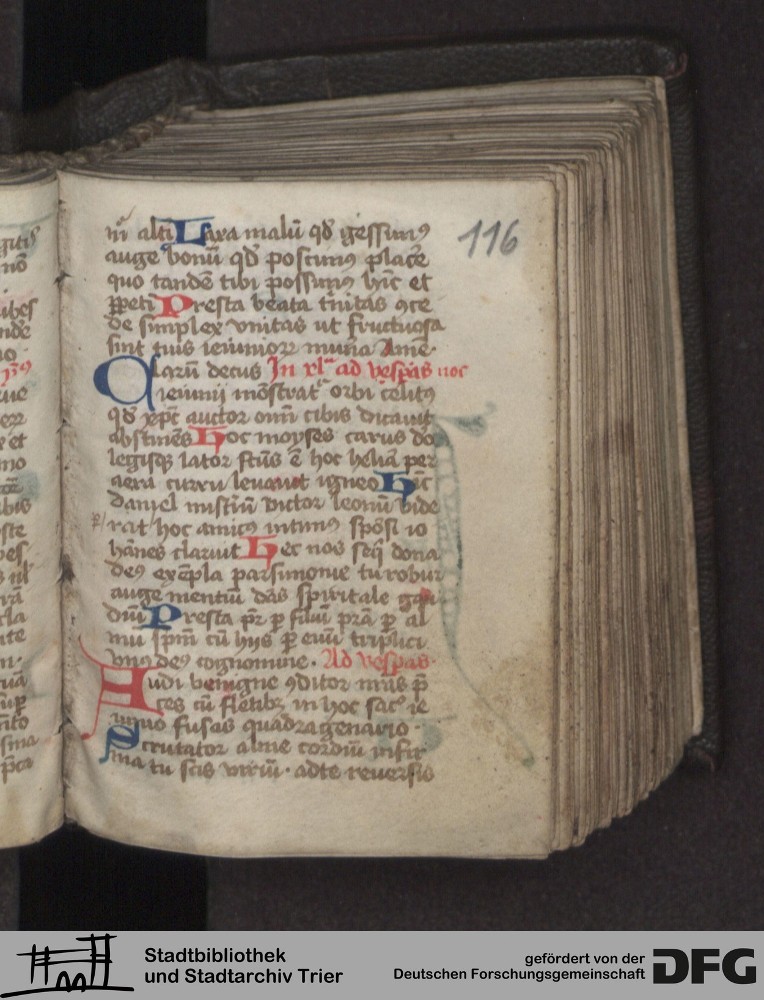 alti Laxa malū qd̄ gessimꝰ
auge bonū qd̄ poscimꝰ plac̄e
quo tandē tibi possimꝰ hīc et
ꝑpeti Presta beata t̄nitas ꝯce
de simplex vnitas ut fructuosa
sint tuis ieiunioꝝ mun̄a Amē
Clarū decus In xlᵃ ad vesꝑas
ieiunij mōstratᷣ orbi celitꝰ
qd̄ xp̄c auctor om̄ cibis dicauit
abstinēs Hoc moyses carus dō
legisqꝫ lator fc̄us ē hoc heliā per
aera curru leuauit igneo Hīc
daniel mist̄iū victor leonū vide
rat hoc amicꝰ intimꝰ spōsi io
hānes claruit Hec nos seqͥ dona
deꝰ exēpla parsimonie tu robur
auge mentiū dās spiritale gau
diū Presta pr̄ ꝑ filiū pr̄a ꝑ al
mū sp̄m cū hijs ꝑ euū triplici
vnꝰ deꝰ cognomine. Ad vesꝑas
Audi benigne ꝯditor nr̄as p̄
ces cū fletibꝫ in hoc sac̄º ie
iunio fusas quadragenario
Scrutator alme cordiū infir
ma tu scis viriū · adte reuersis
116
Stadtbibliothek
und Stadtarchiv Trier
gefördert von der
Deutschen Forschungsgemeinschaft
DFG